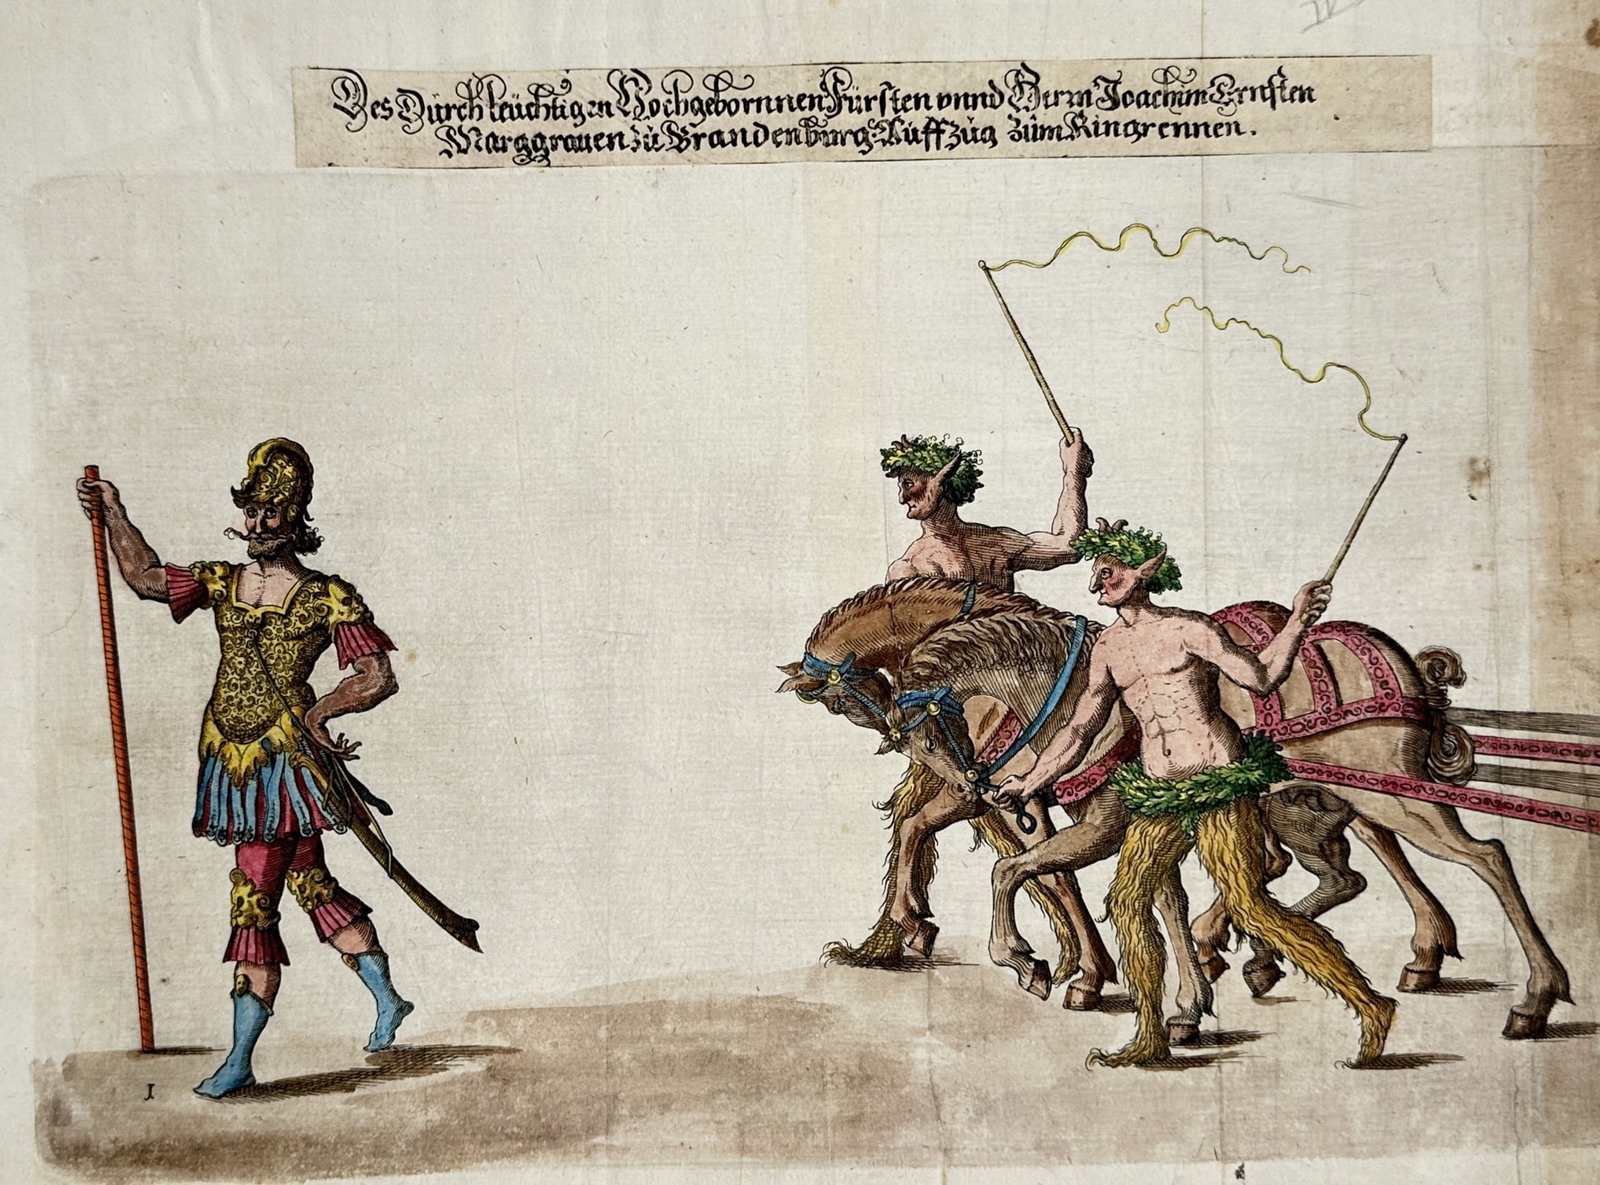 Des Durchleüchtigen Hochgebornnen Fürsten vnnd Herrn Joachim Ernsten
Marggrauen zů Brandenburg: Auffzůg zům Ringrennen.
1